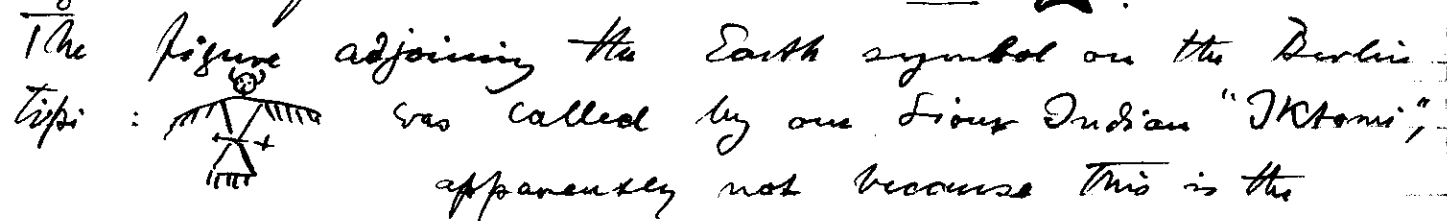 The figure adjoining the Earth symbol on the Berlin
tipi : was called by one Sioux Indian "IKtomi",
apparently not because this is the